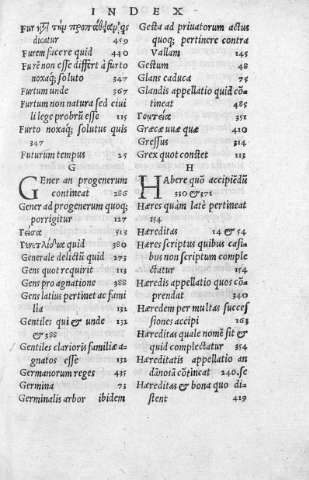 INDEX
dicatur 459
Furem facere quid 440
Furẽ non esse differt à furto
noxaq́; soluto 347
Furtum unde 367
Furtum non natura sed ciui
li lege probrũ esse 115
Furto noxaq́; solutus quis
347
Futurum tempus 25
G
GEner an progenerum
contineat 286
Gener ad progenerum quoq;
porrigitur 127
513
quid 380
Generale delictũ quid 273
Gens quot requirit 113
Gens pro agnatione 388
Gens latius pertinet ac fami
lia 132
Gentiles qui & unde 132
& 388
Gentiles clarioris familiæ a-
gnatos esse 132
Germanorum reges 435
Germina 73
Germinalis arbor ibidem
Gesta ad priuatorum actus
quoq; pertinere contra
Vallam 145
Gestum 48
Glans caduca 75
Glandis appellatio quid cõ
tineat 485
351
Græcæ uuæ quæ 410
Gressus 314
Grex quot constet 113
H
HAbere quõ accipiẽdũ
330 & 171
Hæres quàm latè pertineat
154
Hæreditas 14 & 54
Hæres scriptus quibus casi
bus non scriptum comple
ctatur 154
Hæredis appellatio quos cõ
prendat 340
Hæredem per multas succes
siones accipi 163
Hæreditas quale nomẽ sit &
quid complectatur 354
Hæreditatis appellatio an
dãnosã cõtineat 240. se
Hæreditas & bona quo di-
stent 419